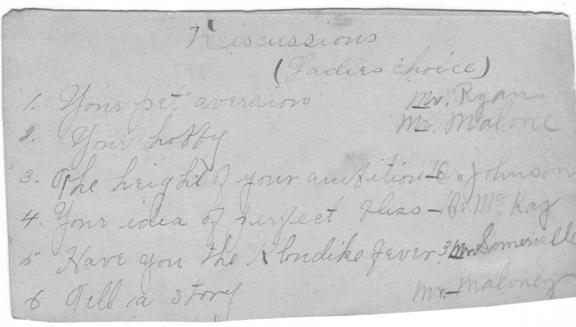 Discussions
(Ladies choice)
1. Your pet aversion Mr. Ryan
2. Your hobby Mr. Malone
3. The height of your ambition - Johnson
4. Your idea of perfect bliss - Mc Kay
5 Have you the Klondike fever? Mr. Somerville
6 Tell a story Mr. Maloney